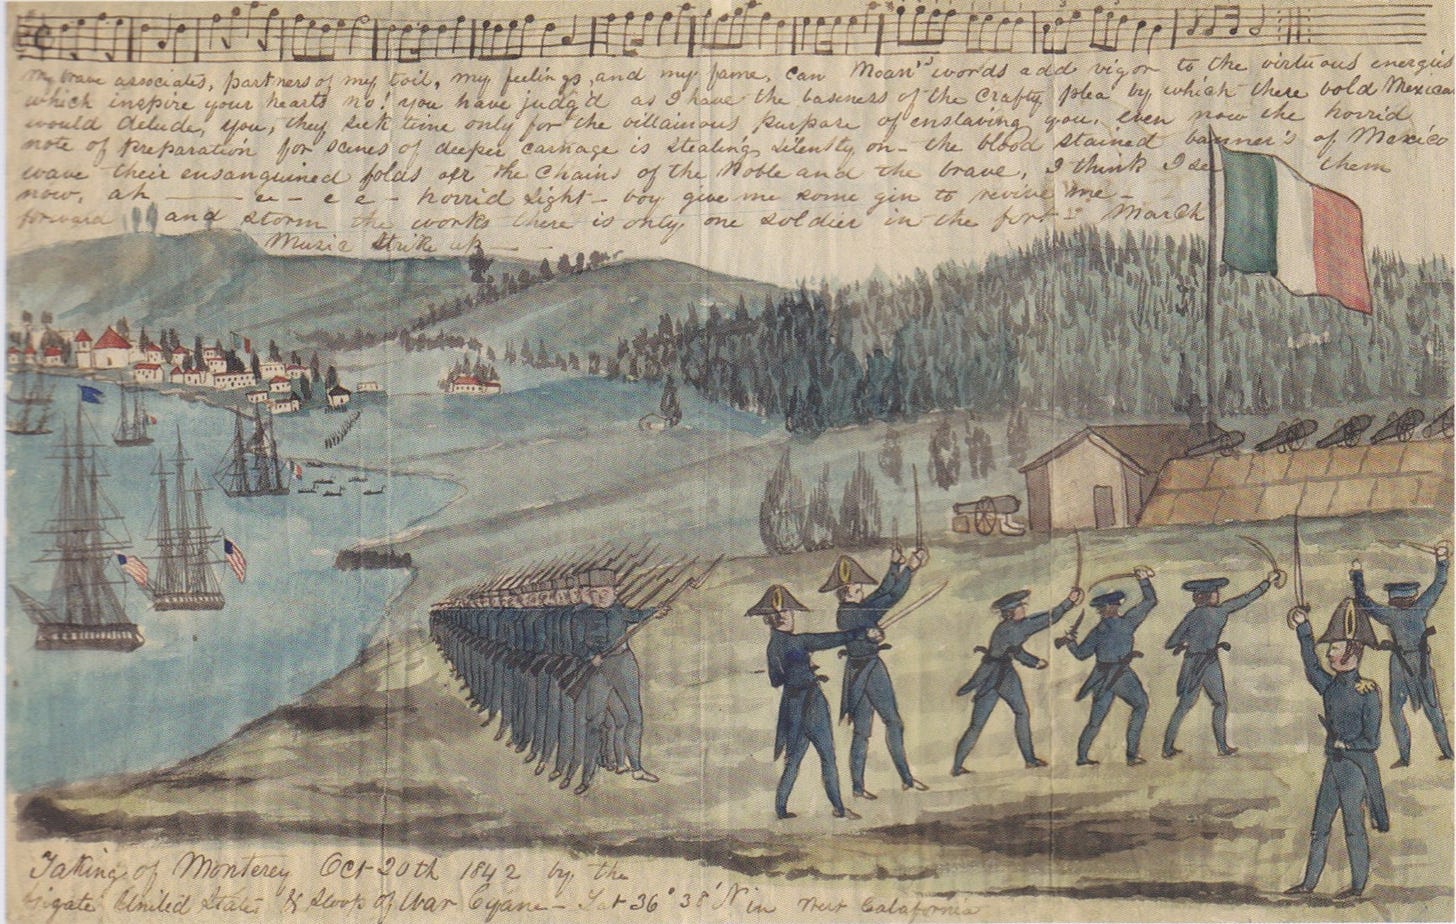 My brave associates, partners of my toil, my feelings, and my fame, can Moan's words add vigor to the virtuous energies
which inspire your hearts no! you have judg'd as I have the baseness of the crafty plea by which these bold Mexican
would delude, you, they seek time only for the villainous purpose of enslaving you, even now the horrid
note of preparation for scenes of deeper carnage is stealing silently on - the blood stained banner's of Mexico
wave their ensanguined folds oer the chains of the Noble and the brave, I think I see them
now, ah horrid sight - boy give me some gin to revive me -
forward and storm the works there is only one soldier in the fort March
Music strike up
Taking of Monterey Oct 20th 1842 by the
frigate United States & Sloop of War Cyane - Lat 36° 38' N in West Calafornia